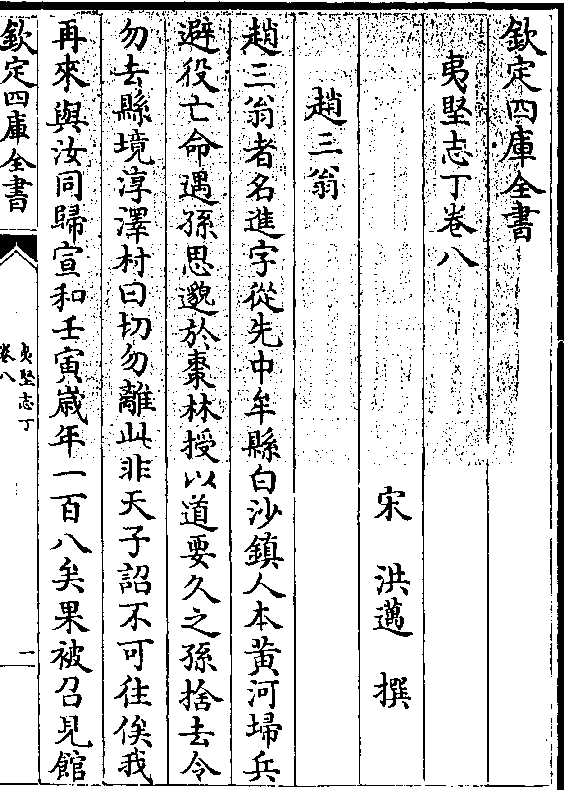 欽定四庫全書
夷堅志丁卷八
宋 洪邁 撰
趙三翁
趙三翁者名進字從先中牟縣白沙鎮人本黃河埽兵
避役亡命遇孫思邈於棗林授以道要久之孫捨去令
勿去縣境淳澤村曰切勿離此非天子詔不可往俟我
再來與汝同歸宣和壬寅歲年一百八矣果被召見館
欽定四庫全書
夷堅志丁
卷八
一